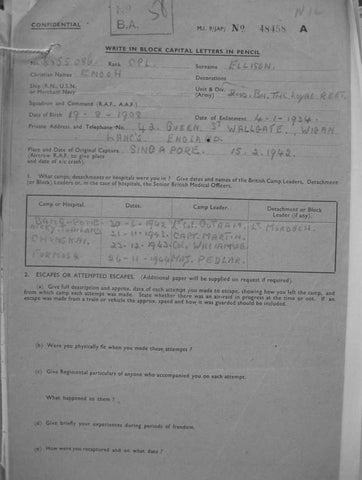 CONFIDENTIAL
B.A.
M.I. 9/JAP/ No 48458 A
WRITE IN BLOCK CAPITAL LETTERS IN PENCIL
Rank CPL. Surname ELLISON.
Christian Names ENOCH Decorations
Ship (R.N., U.S.N. or Merchant Navy) Unit & Div. (Army) 2ND. BN. THE LOYAL REGT.
Squadron and Command (R.A.F., A.A.F.)
Date of Birth 19-8-1908 Date of Enlistment 4-1-1924.
Private Address and Telephone No. 42 QUEEN ST WALLGATE, WIGAN
LANCS. ENGLAND.
Place and Date of Original Capture SINGAPORE. 15.2.1942.
(Aircrew R.A.F. to give place
and date of a/c crash)
1. What camps, detachments or hospitals were you in? Give dates and names of the British Camp Leaders, Detachment
(or Block) Leaders or, in the case of hospitals, the Senior British Medical Officers.
Camp or Hospital. Dates. Camp Leader. Detachment or Block Leader (if any).
LT MURDOCH.
21-11-1943. CAPT. MARTIN,
CHUNGKAI. 23-12-1943
FORMOSA 26-11-1944 MAJ. PEDLAR.
2. ESCAPES OR ATTEMPTED ESCAPES. (Additional paper will be supplied on request if required).
(a) Give full description and approx. date of each attempt you made to escape, showing how you left the camp, and
from which camp each attempt was made. State whether there was an air-raid in progress at the time or not. If an
escape was made from a train or vehicle the approx. speed and how it was guarded should be included.
(b) Were you physically fit when you made these attempts?
(c) Give Regimental particulars of anyone who accompanied you on each attempt.
What happened to them?
(d) Give briefly your experiences during periods of freedom.
(e) How were you recaptured and on what date?